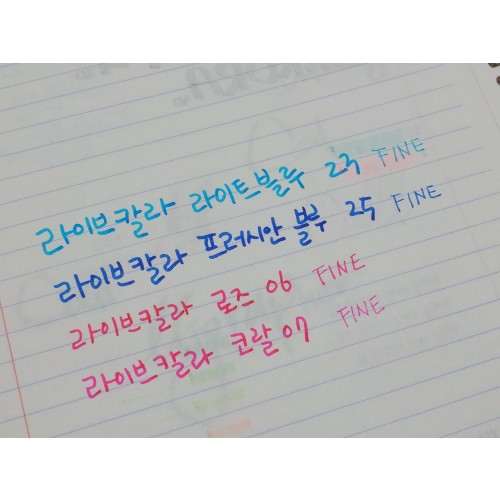 라이브칼라 라이트블루 23 FINE
라이브칼라 프러시안 블루 25 FINE
라이브칼라 로즈 06 FINE
라이브칼라 코랄 07 FINE